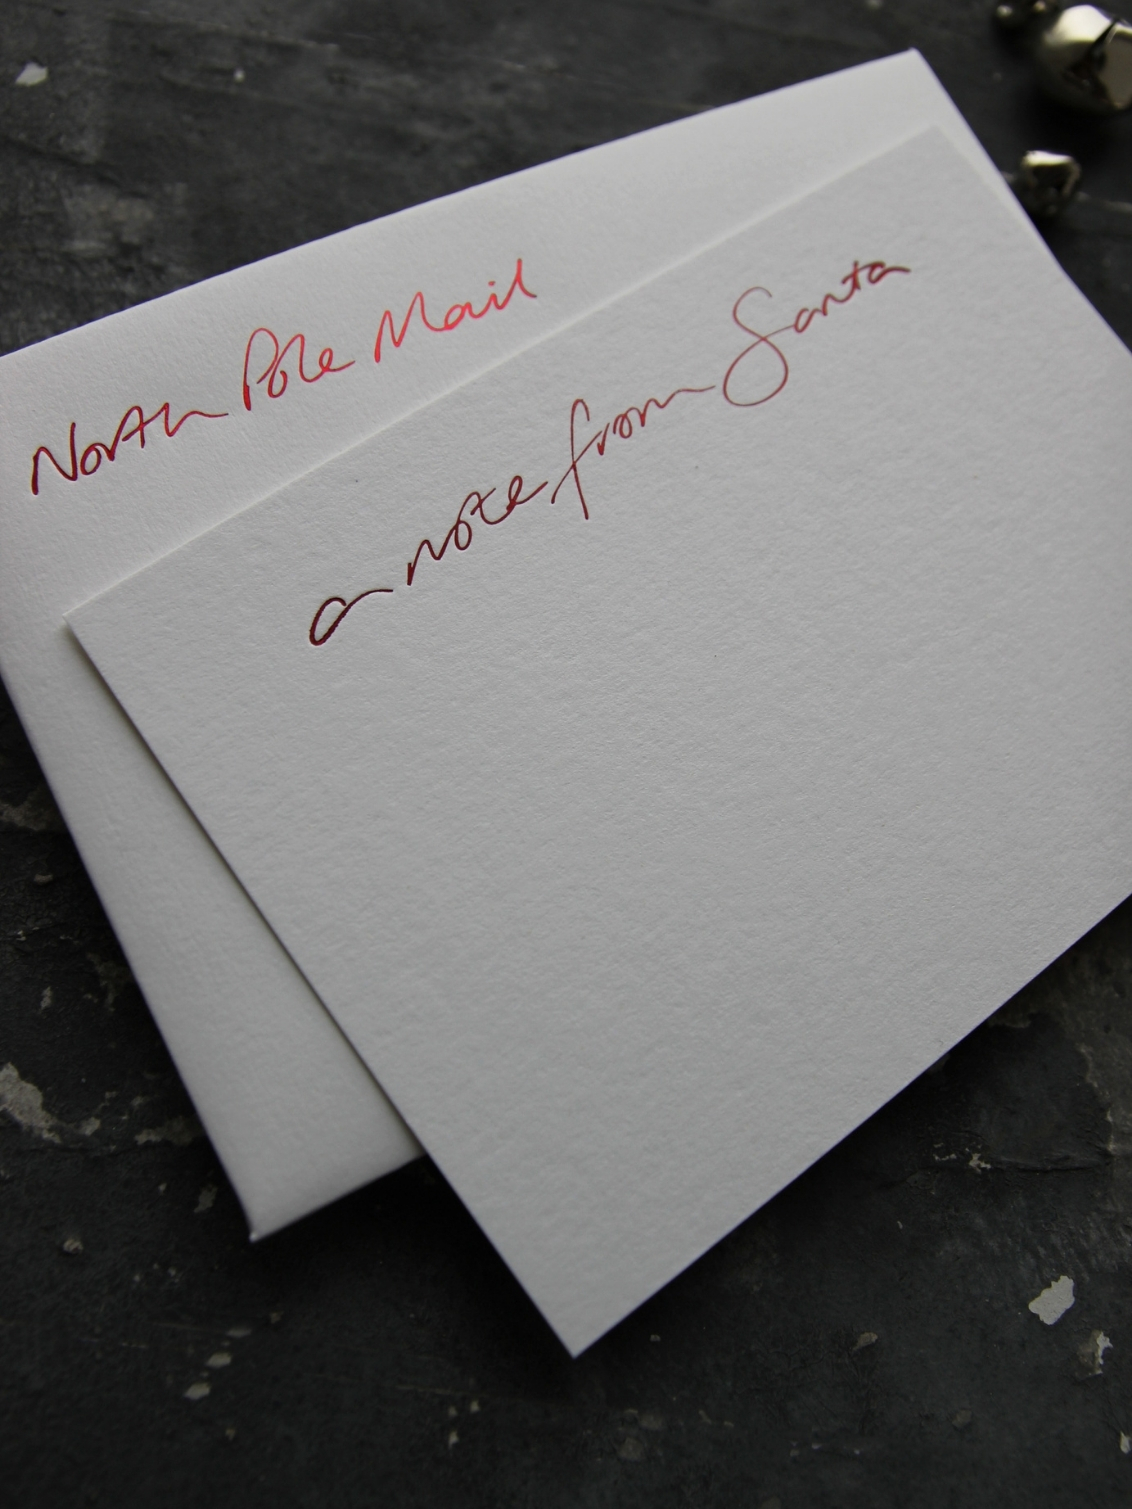 North Pole Mail
a note from Santa